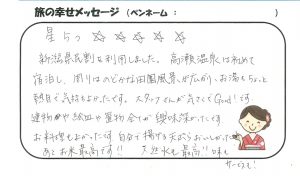 旅の幸せメッセージ（ペンネーム： ）
星5つ ☆ ☆ ☆ ☆ ☆
新潟県民割を利用しました。高瀬温泉は初めて
宿泊し、周りはのどかな田園風景が広がり、お湯もちょっと
熱目で気持ちよかったです。スタッフさんが気さくでGood!です
建物や絵皿や置物全てが趣味深かったです
お料理もよかったです 自分で揚げる天ぷらおいしかった
あとお米最高です!! 天然水も最高!! 味も
サービスも!